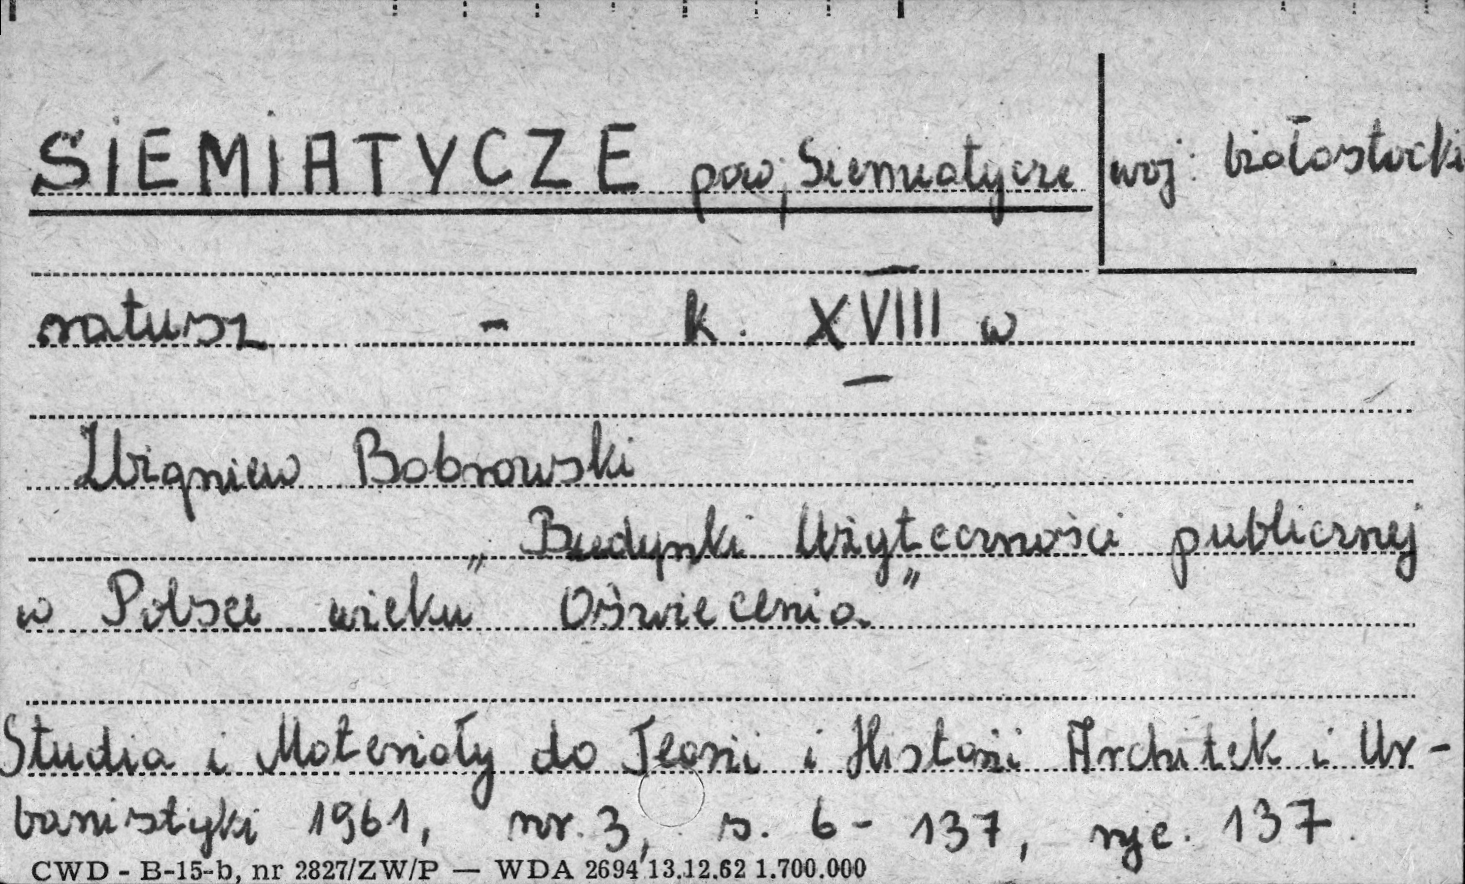 SIEMIATYCZE pow. Siemiatycze woj. białostocki
ratusz - k. XVIII w
Zbigniew Bobrowski
„Budynki Użyteczności publicznej
w Polsce wieku Oświecenia"
Studia i Materiały do Teorii i Historii Architek i Ur-
banistyki 1961, nr. 3, s. 6-137, ryc. 137.
CWD - B-15-b, nr 2827/ZW/P — WDA 2694 13.12.62 1.700.000